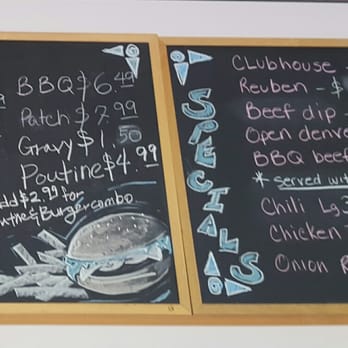 BBQ $6.49
Patch $7.99
Gravy $1.50
Poutine $4.99
add $2.99 for
Poutine & Burger combo
SPECIALS
Clubhouse
Reuben - $
Beef dip -
Open denve
BBQ beef
* served wit
Chili Lg
Chicken
Onion R